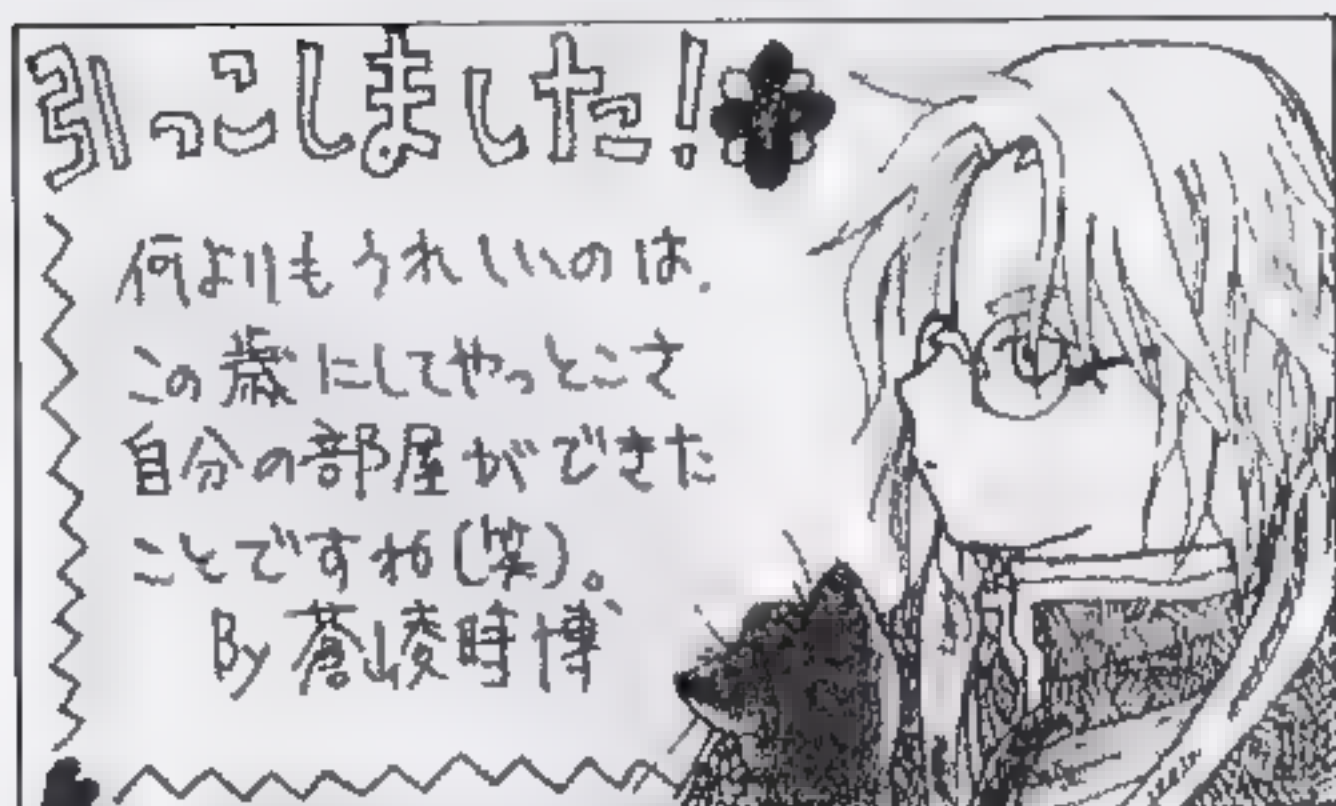 引っこしました!
何よりもうれしいのは、
この歳にしてやっとこさ
自分の部屋ができた
ことですね(笑)。
By 蒼崚時博